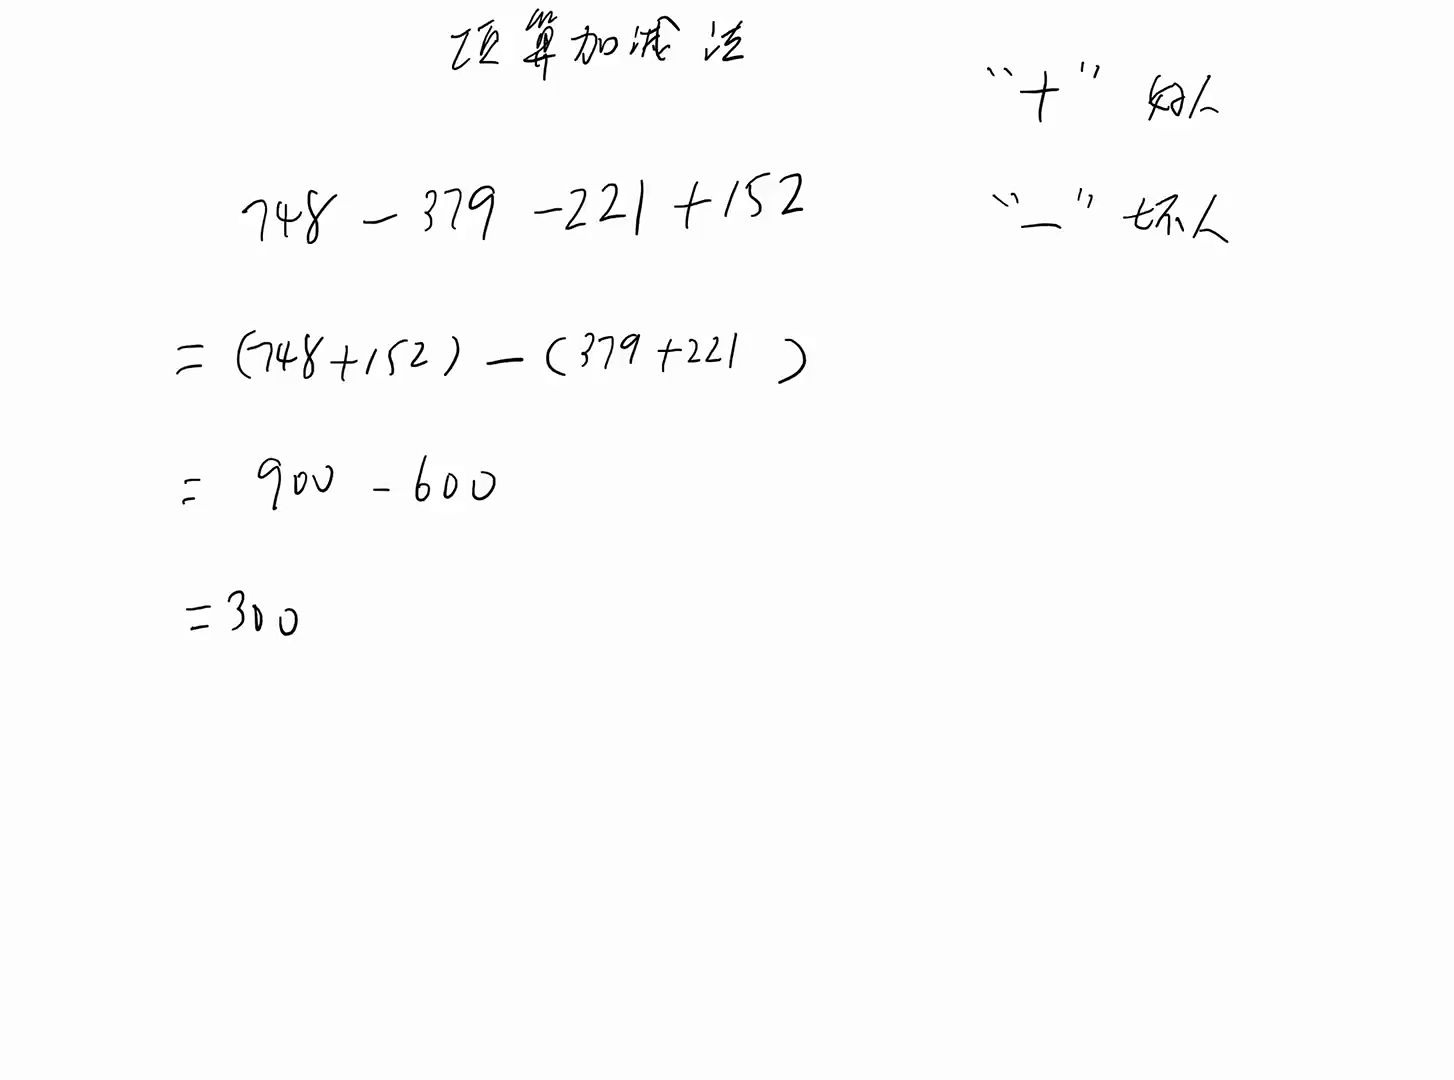 巧算加减法
“+” 好人
748 - 379 - 221 + 152
“-” 坏人
= (748+152) - (379+221)
= 900 - 600
= 300